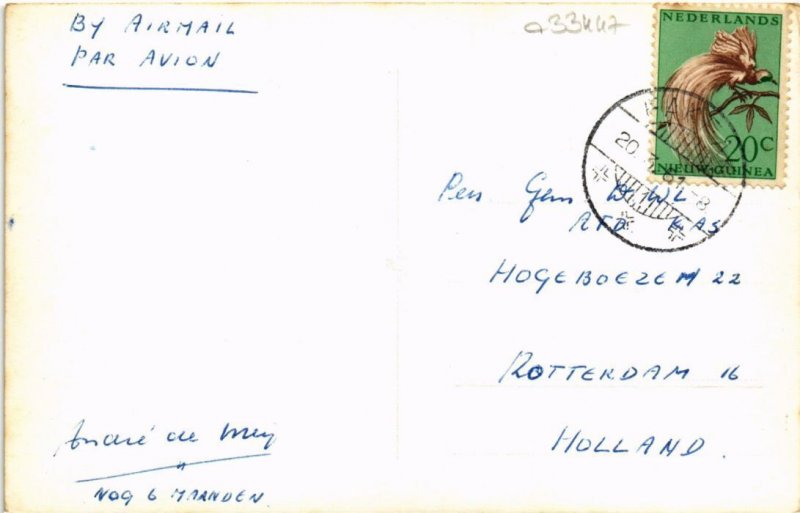 BY AIRMAIL
PAR AVION
a33447
NEDERLANDS
20C
NIEUW-GUINEA
20
61.-8
Pers. Gem
RTD KAS
HOGEBOEZEM 22
ROTTERDAM 16
HOLLAND.
André de Meij
NOG 6 MAANDEN